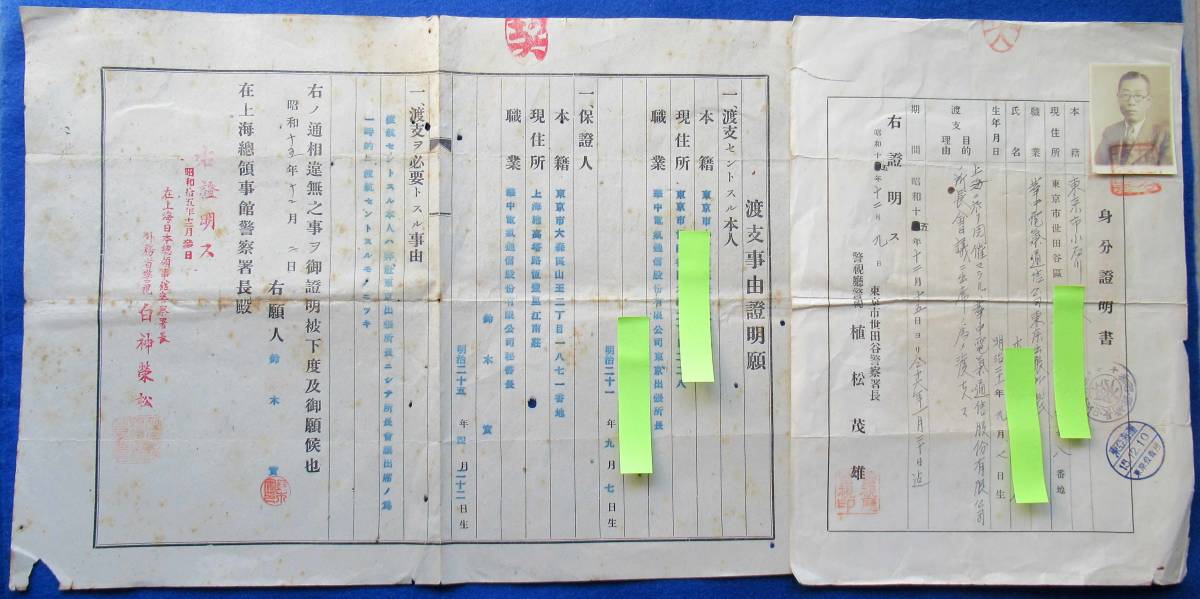 身分證明書
本籍 東京市小石川
現住所 東京市世田谷區 八番地
職業 華中電氣通信公司東京出張所長
氏名
生年月日 明治二十一年九月七日生
渡支目的理由 上海ニ於テ開催セラル華中電氣通信股份有限公司
所長會議ニ出席ノ為メ渡支ス
期間 昭和十五年十二月十五日ヨリ
右證明ス
昭和十五年十二月九日
東京市世田谷警察署長
警視廳警視 植松茂雄
15.12.10
渡支事由證明願
一、渡支セントスル本人
本籍 東京市
現住所 東京市
職業 華中電氣通信股份有限公司東京出張所長
明治二十一年九月七日生
一、保證人
本籍 東京市大森區山王二丁目一八七一番地
現住所 上海地高塔路恆豐里江南莊
職業 華中電氣通信股份有限公司秘書長
鈴木實
明治二十五年四月二十二日生
一、渡支ヲ必要トスル事由
渡航セントスル本人ハ弊社東京出張所長ニシテ所長會議出席ノ為
一時的ニ渡航セントスルモノニツキ
右ノ通相違無之事ヲ御證明被下度及御願候也
昭和十五年十二月二日
右願人 鈴木實
在上海總領事館警察署長殿
右證明ス
昭和拾五年十二月 日
在上海日本總領事館警察署長
外務省警視 白神榮松